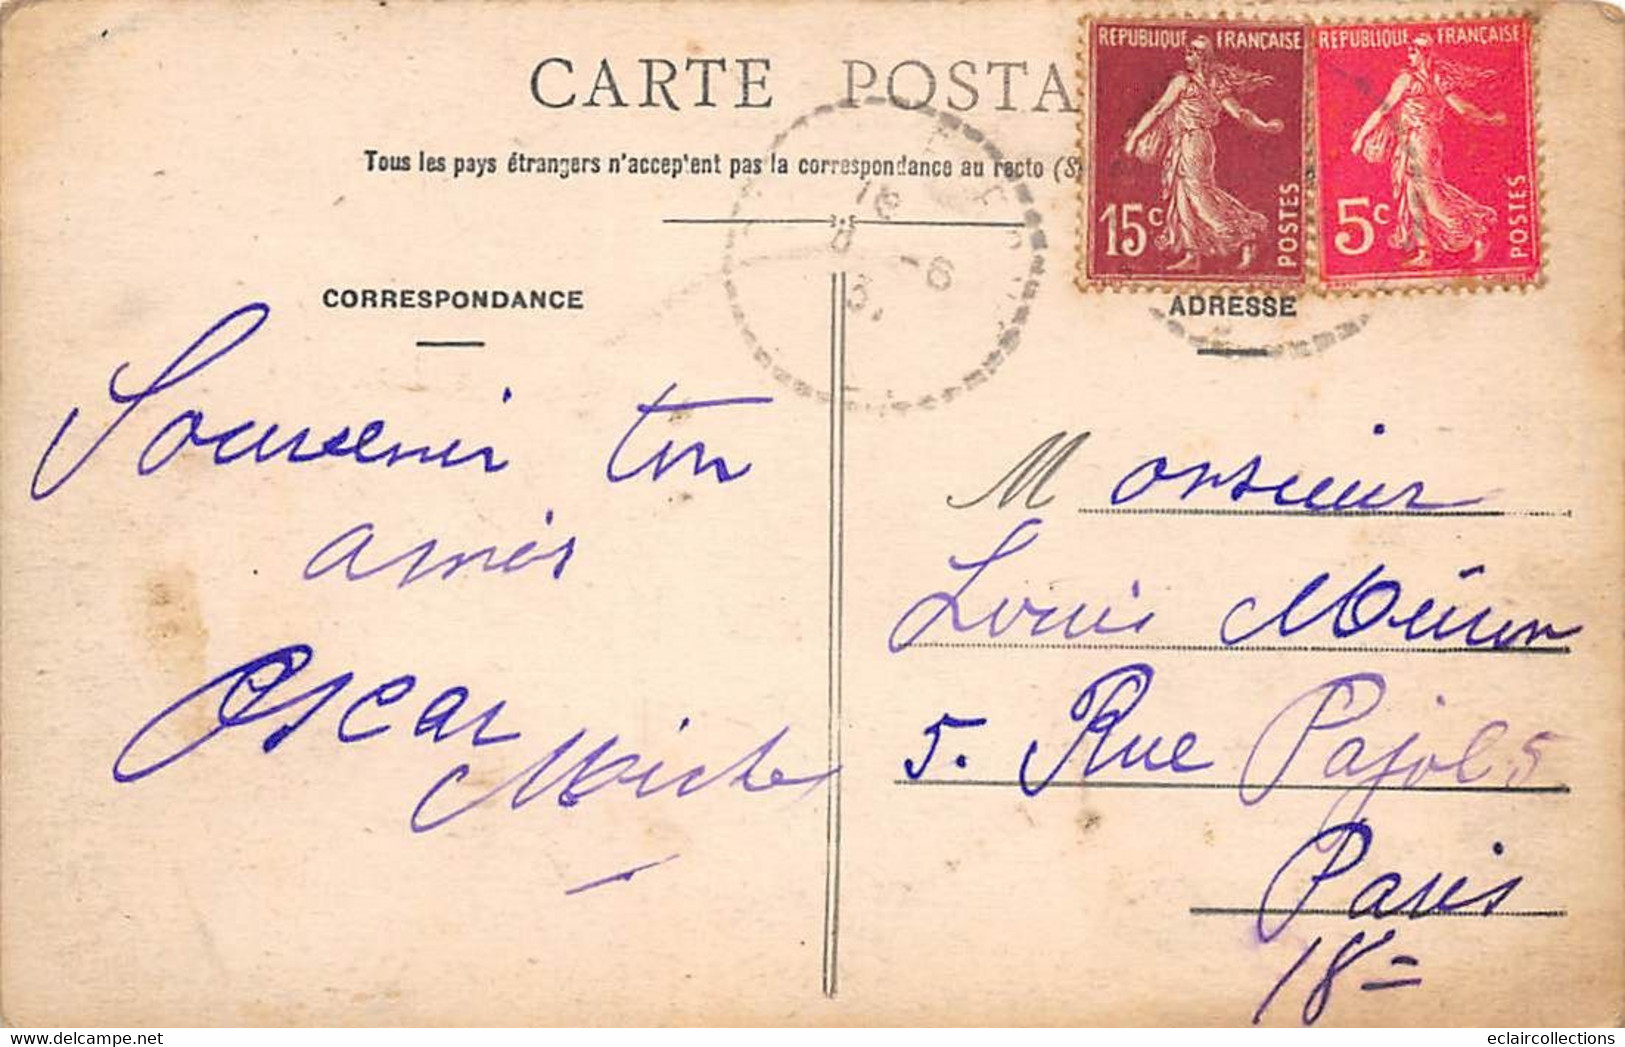 CARTE POSTA
Tous les pays étrangers n'acceptent pas la correspondance au recto (S
REPUBLIQUE FRANÇAISE
15c
POSTES
REPUBLIQUE FRANÇAISE
5c
POSTES
16
8 -6
31
CORRESPONDANCE
Souvenir ton
amis
Oscar
ADRESSE
Monsieur
Louis
5. Rue Pajol 5
Paris
18=
eclaircollections